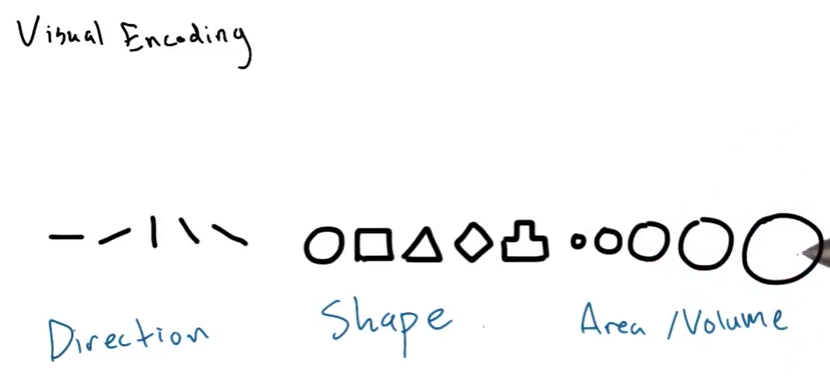 Visual Encoding
Direction
Shape
Area /Volume